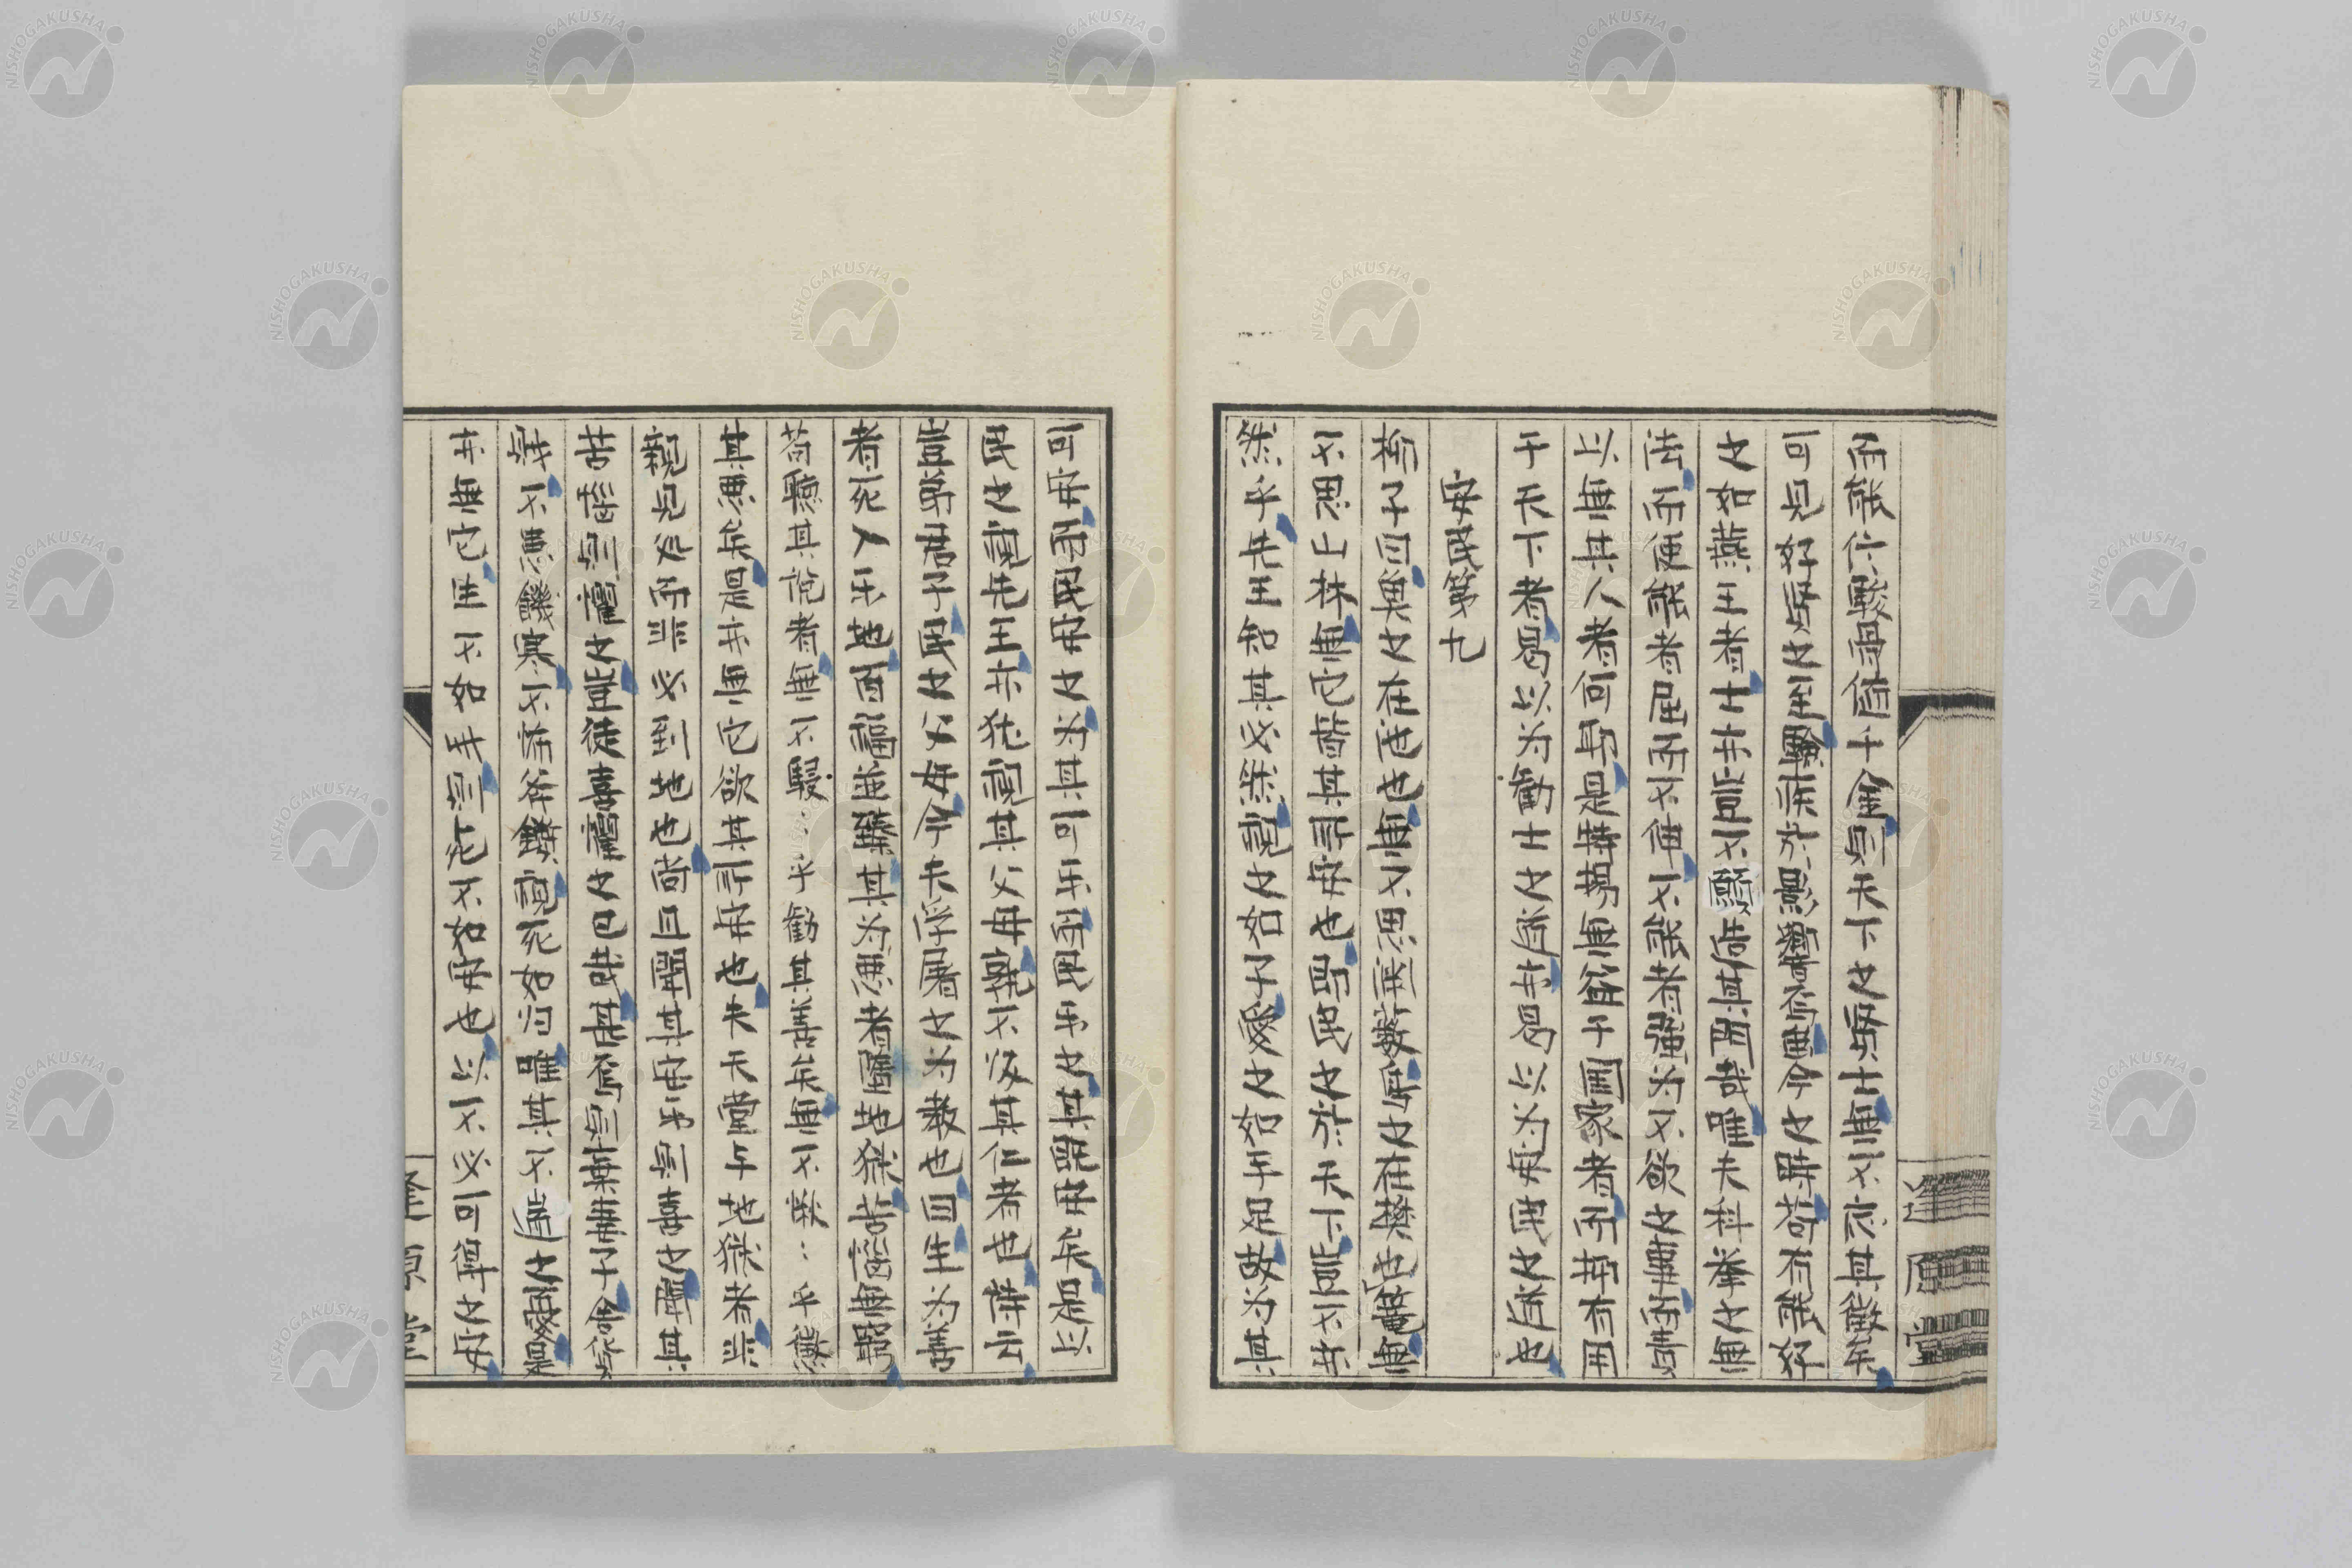 而能市駿骨值千金則天下之良士無不応其徴矣
可見好悪之至験疾於影響否無今之時苟有能好
之如燕王者士亦豈不顕焉其国哉唯夫科挙之無
法而使能者屈而不伸不能者彊為不欲之事而責
以無其人者何耶是無益于国家者而苟有用
于天下者曷以為勧士之道亦曷以為安民之道也
安民第九
柳子曰魚之在池也無不思深藪鳥之在樊也無
不思山林無它皆其所安也民之於天下豈不亦
然乎先王知其必然視之如子愛之如手足安為其
可安而民安之為其可楽而民楽之其既安矣是以
民之視先王亦猶視其父母孰不謂其仁者也詩云
豈弟君子民之父母今夫浮屠之為教也曰生為善
者死入楽地百福並臻其為悪者墮地獄苦悩無聊
苟聴其説者無不駸々乎勧其善矣無不歎々乎懲
其悪矣是亦無它欲其所安也夫天堂与地獄者非
親見之而非必到地也尚且聞其安楽則喜之聞其
苦悩則懼之豈徒喜懼之已哉甚焉則棄妻子舎貨
財不悪饑寒不怖斧鑕視死如帰唯其不達之憂是
亦無它生不如死則危不如安也以不必可得之安
逢原堂